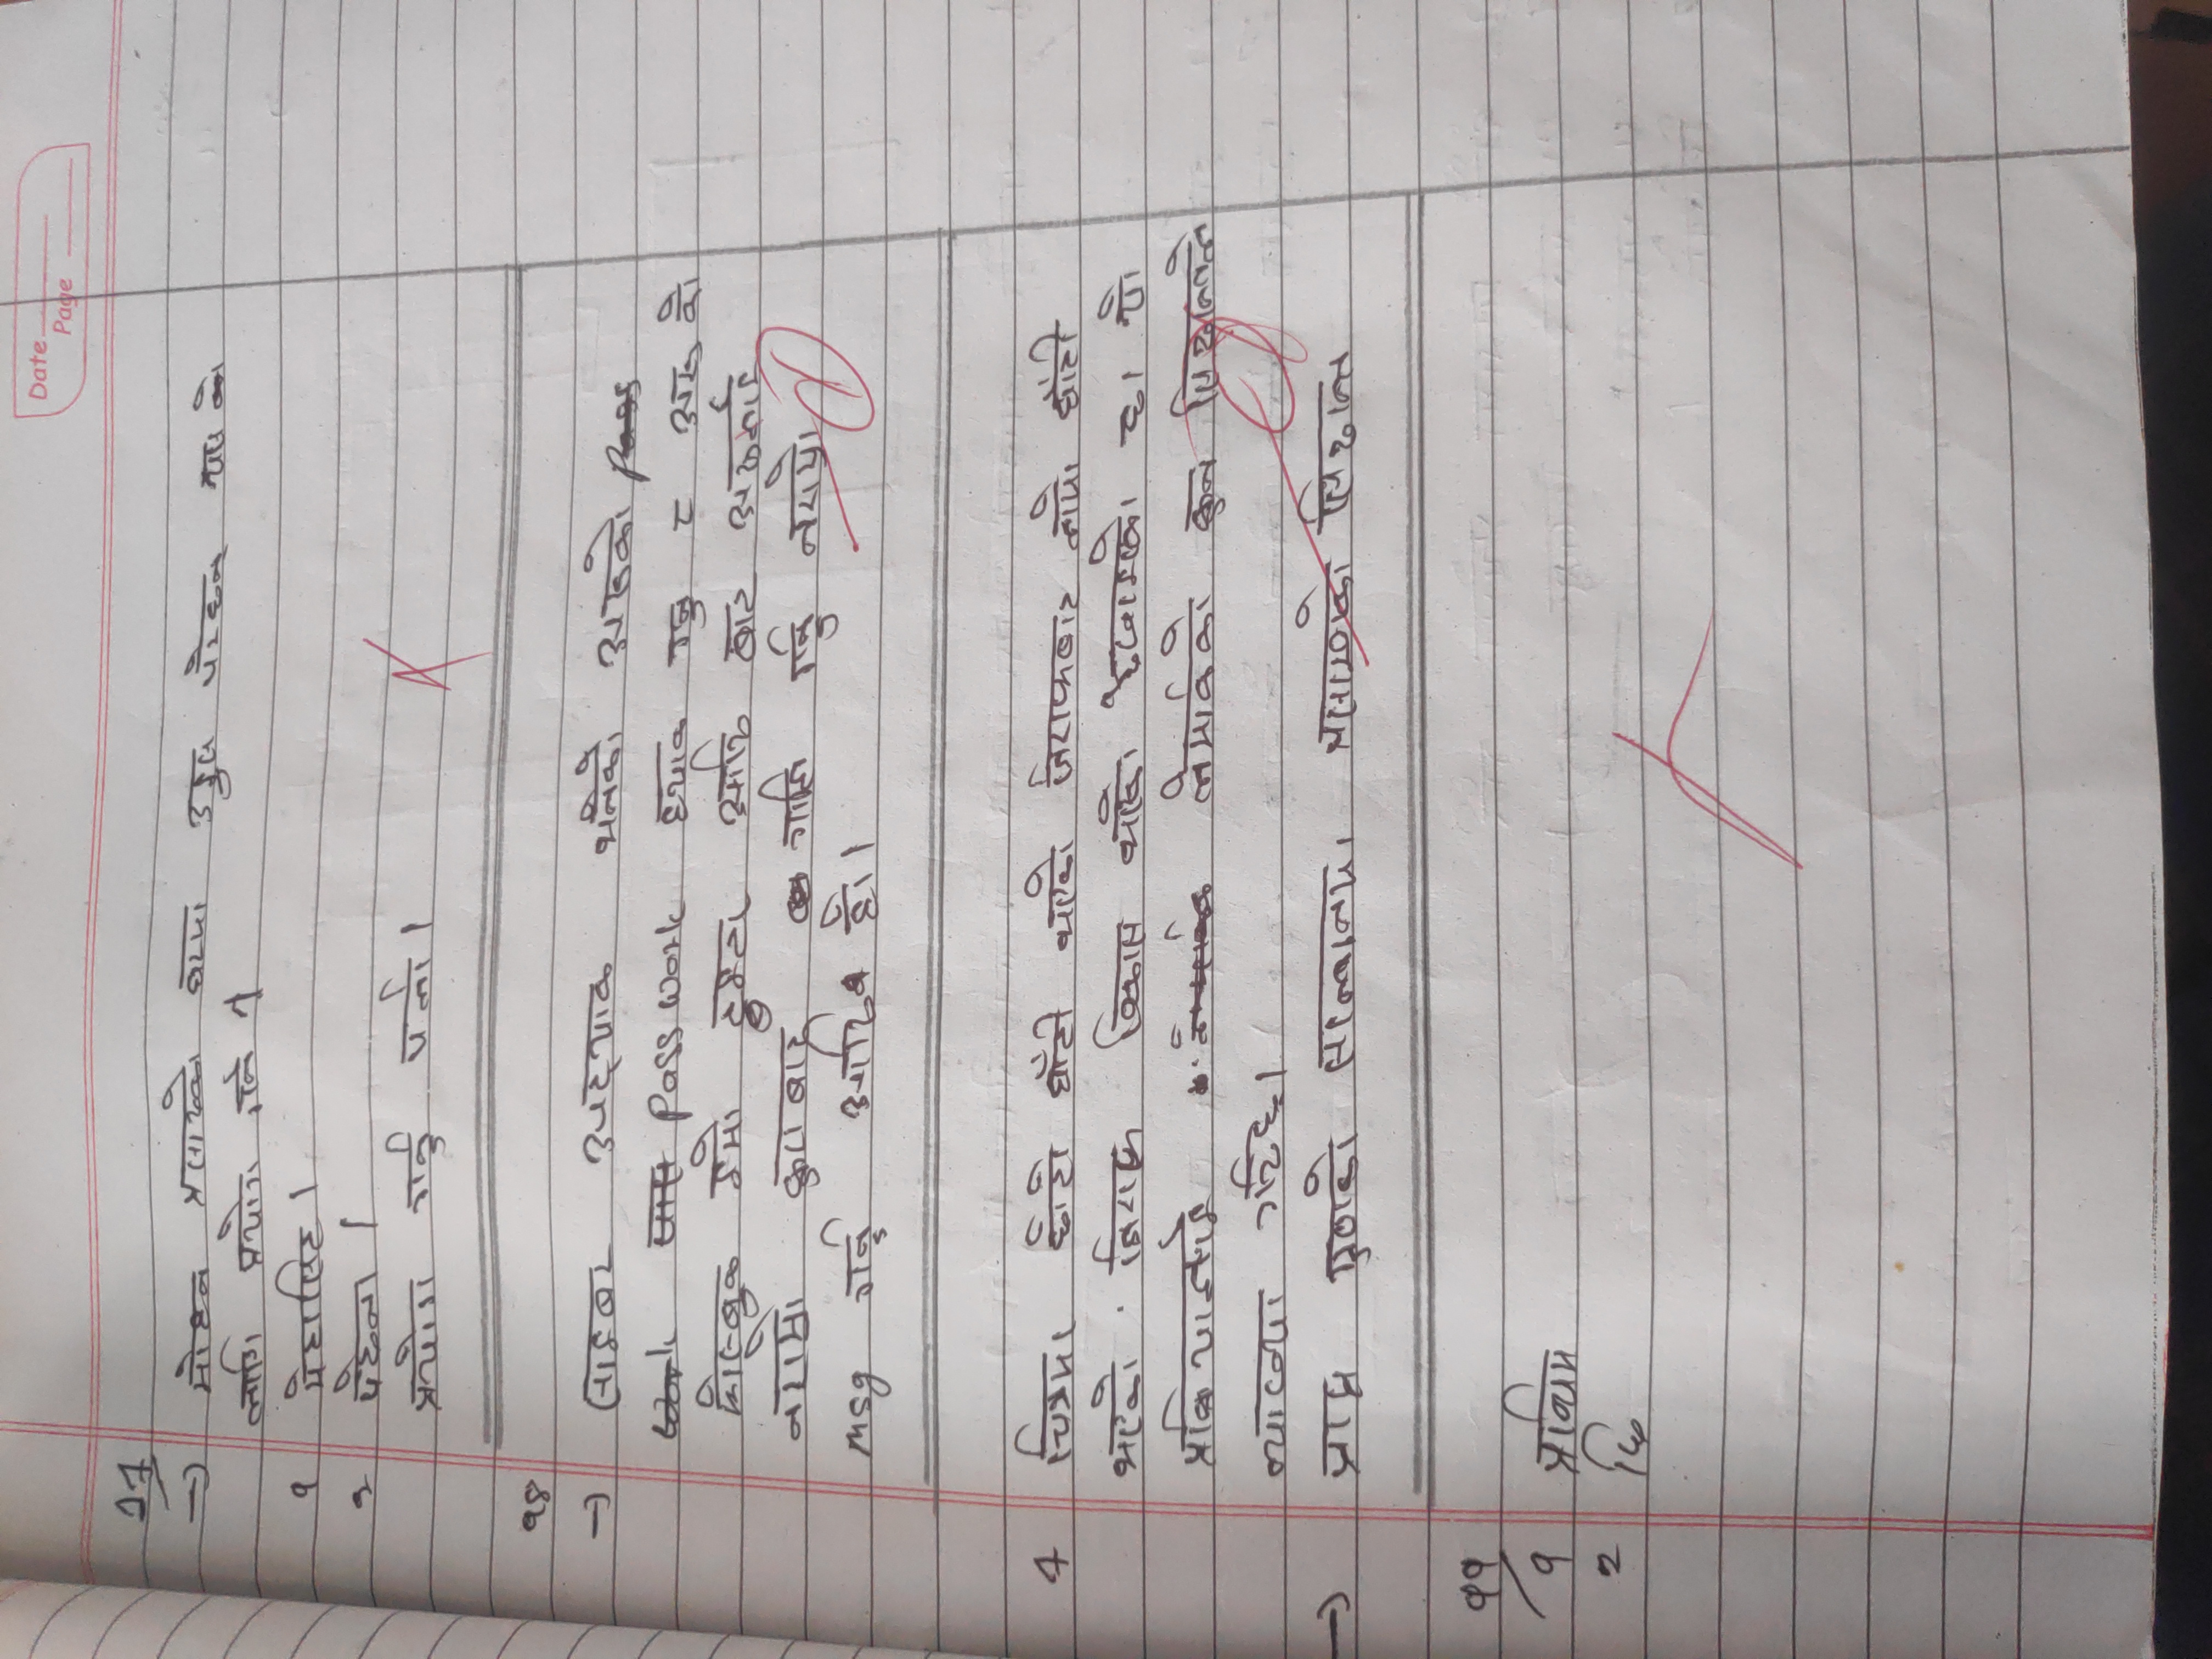 Date
Page
17
→ मोहन प्रसादको घरमा उडुस परेछन त्यस को
लागि प्रयोग गर्ने
१ मेटासिह ।
२
प्रयोग गर्नु पर्ला ।
१४
→ साइबर अपह्याक भनेको अरुको Pass
work Passwork ह्याक गनु र अरु को
फेस्बुक इमो टुइटर आदि बाट अरुलाई
नराम्रो कुराबाट गालि गर्नु नराम्रो
msg गर्नु आदि हो ।
4 चित्रमा छोटो घाँटी भएको जिराफबाट लामो घाँटी
भएको जिराफ विकास भएको देखाइएको छ। यो
प्रकियालाई लेमार्कको कुन सिद्धान्तले
व्याख्या गर्दछ।
→ प्राप्त गुणको सन्तानमा प्रसारणको सिद्धान्त
११
१
2